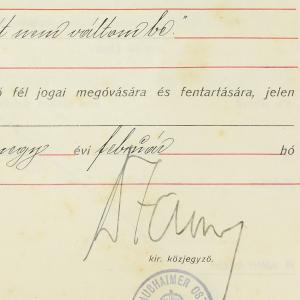 t nem váltom be."
ő fél jogai megóvására és fentartására, jelen
negy évi február hó
kir. közjegyző.